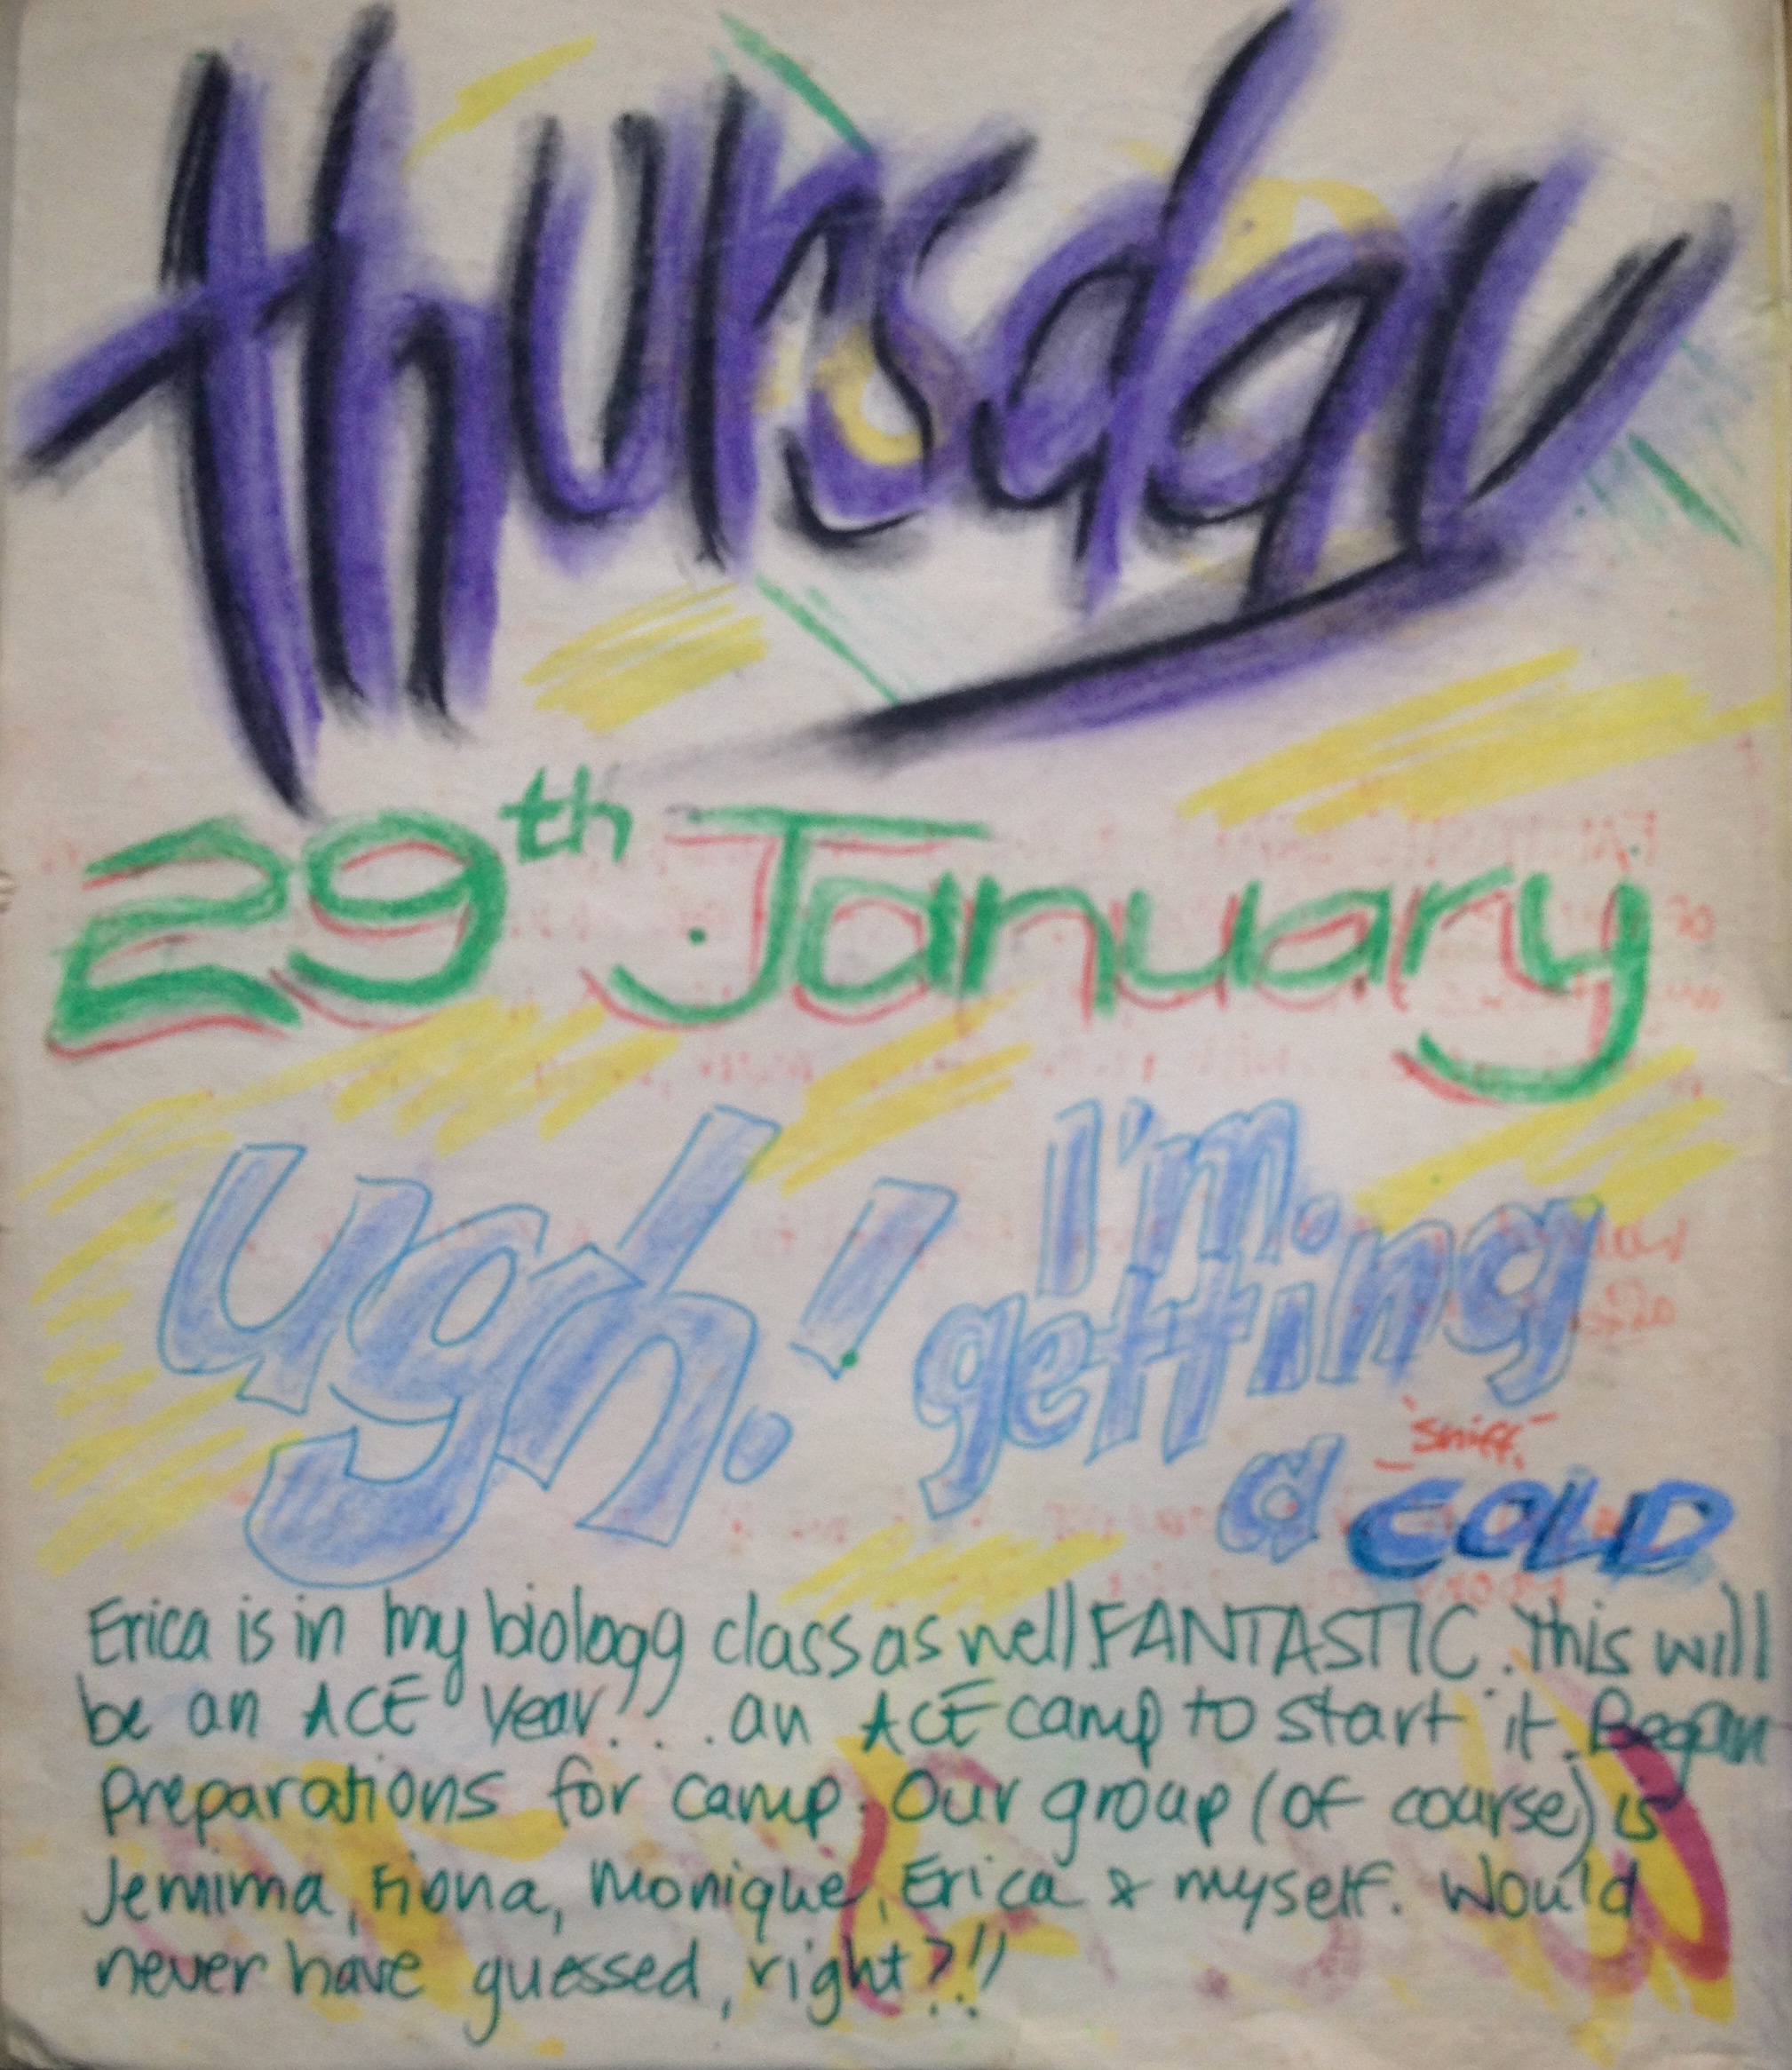 Thursday
29th January
Ugh! I'm
getting
"sniff"
a COLD
Erica is in my biology class as well FANTASTIC. This will
be an ACE year!... an ACE camp to start it. Began
preparations for camp. Our group (of course) is
Jemima, Fiona, Monique, Erica & myself. Would
never have guessed, right?!!